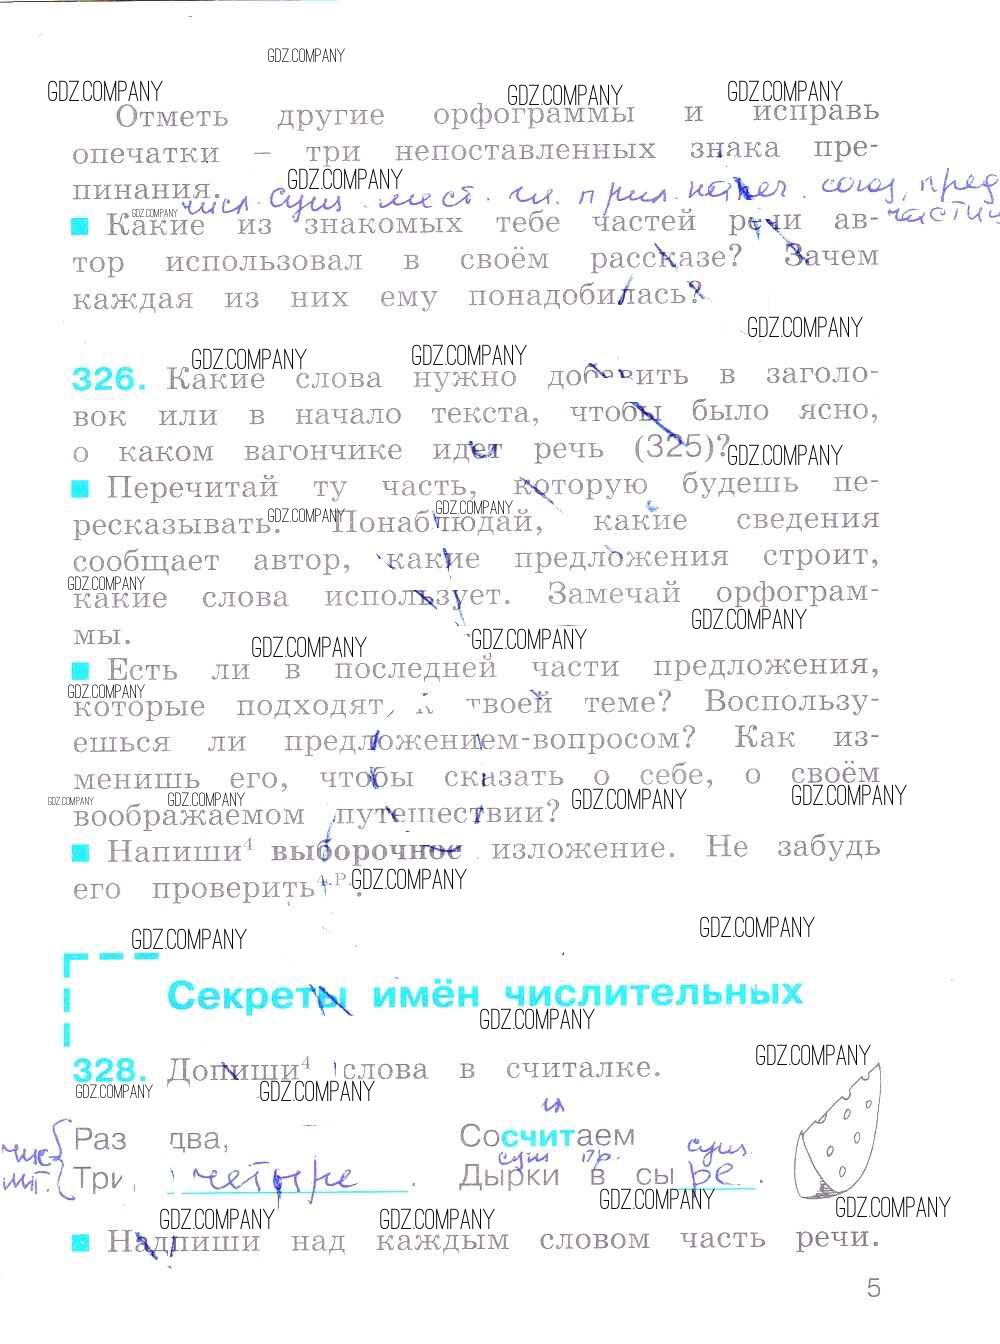 GDZ.COMPANY
GDZ.COMPANY GDZ.COMPANY GDZ.COMPANY
Отметь другие орфограммы и исправь
опечатки – три непоставленных знака пре-
пинания. GDZ.COMPANY
числ. сущ. мест. гл. прил. нареч. союз, пред
GDZ.COMPANY
Какие из знакомых тебе частей речи ав-
тор использовал в своём рассказе? Зачем
каждая из них ему понадобилась?
GDZ.COMPANY
GDZ.COMPANY GDZ.COMPANY
326. Какие слова нужно добавить в заголо-
вок или в начало текста, чтобы было ясно,
о каком вагончике идет речь (325)?
GDZ.COMPANY
Перечитай ту часть, которую будешь пе-
ресказывать. Понаблюдай, какие сведения
GDZ.COMPANY GDZ.COMPANY
сообщает автор, какие предложения строит,
GDZ.COMPANY
какие слова использует. Замечай орфограм-
мы.
GDZ.COMPANY GDZ.COMPANY GDZ.COMPANY
Есть ли в последней части предложения,
GDZ.COMPANY
которые подходят к твоей теме? Воспользу-
ешься ли предложением-вопросом? Как из-
менишь его, чтобы сказать о себе, о своём
GDZ.COMPANY GDZ.COMPANY GDZ.COMPANY GDZ.COMPANY
воображаемом путешествии?
Напиши4 выборочное изложение. Не забудь
его проверить4.Р. .
GDZ.COMPANY
GDZ.COMPANY GDZ.COMPANY
Секреты имён числительных
GDZ.COMPANY
328. Допиши4 слова в считалке.
GDZ.COMPANY GDZ.COMPANY GDZ.COMPANY
гл
Раз два, Сосчитаем
сущ пр. сущ
Три, четыре . Дырки в сыре .
GDZ.COMPANY GDZ.COMPANY GDZ.COMPANY GDZ.COMPANY
Надпиши над каждым словом часть речи.
5